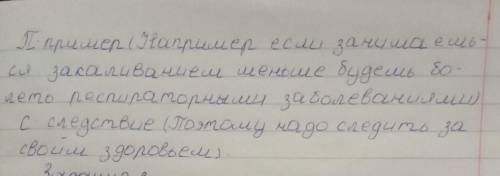 П-пример (Например если занимаешь-
ся закаливанием меньше будешь бо-
леть респираторными заболеваниями)
С следствие (Поэтому надо следить за
своим здоровьем).